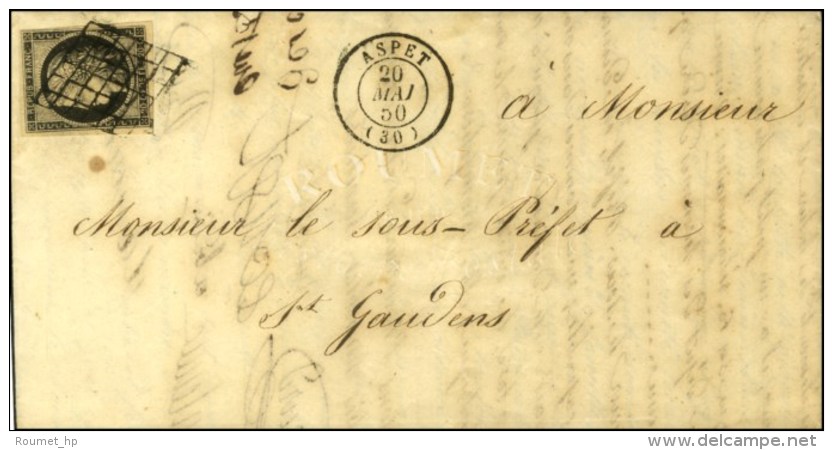 REPUB. FRANC.
ASPET
20
MAI
50
(30)
à Monsieur
Monsieur le sous-Préfet à
St Gaudens
ROUMET
Roumet_hp
www.delcampe.net